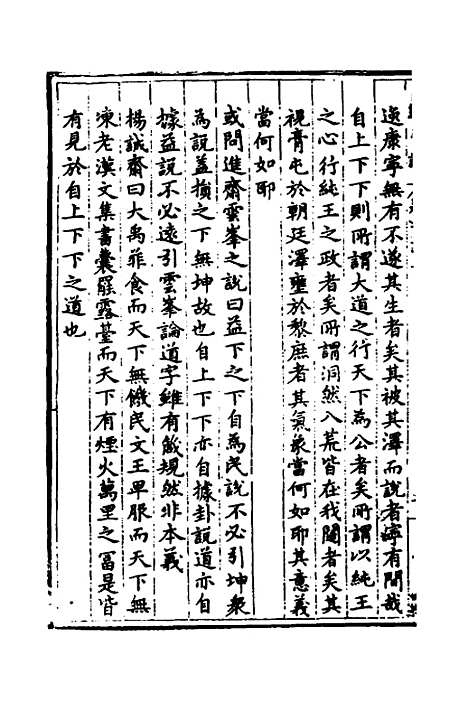 逸康寧無有不遂其生者矣其被其澤而說者寧有間哉
自上下下則所謂大道之行天下為公者矣所謂以純王
之心行純王之政者矣所謂洞然八荒皆在我闥者矣其
視膏屯於朝廷澤壅於黎庶者其氣象當何如耶其意義
當何如耶
或問進齋雲峯之說曰益下之下自為民說不必引坤衆
為說蓋損之下無坤故也自上下下亦自據卦說道亦自
據益說不必遠引雲峯論道字雖有箴規然非本義
楊誠齋曰大禹菲食而天下無饑民文王卑服而天下無
凍老漢文集書囊罷露臺而天下有煙火萬里之富是皆
有見於自上下下之道也